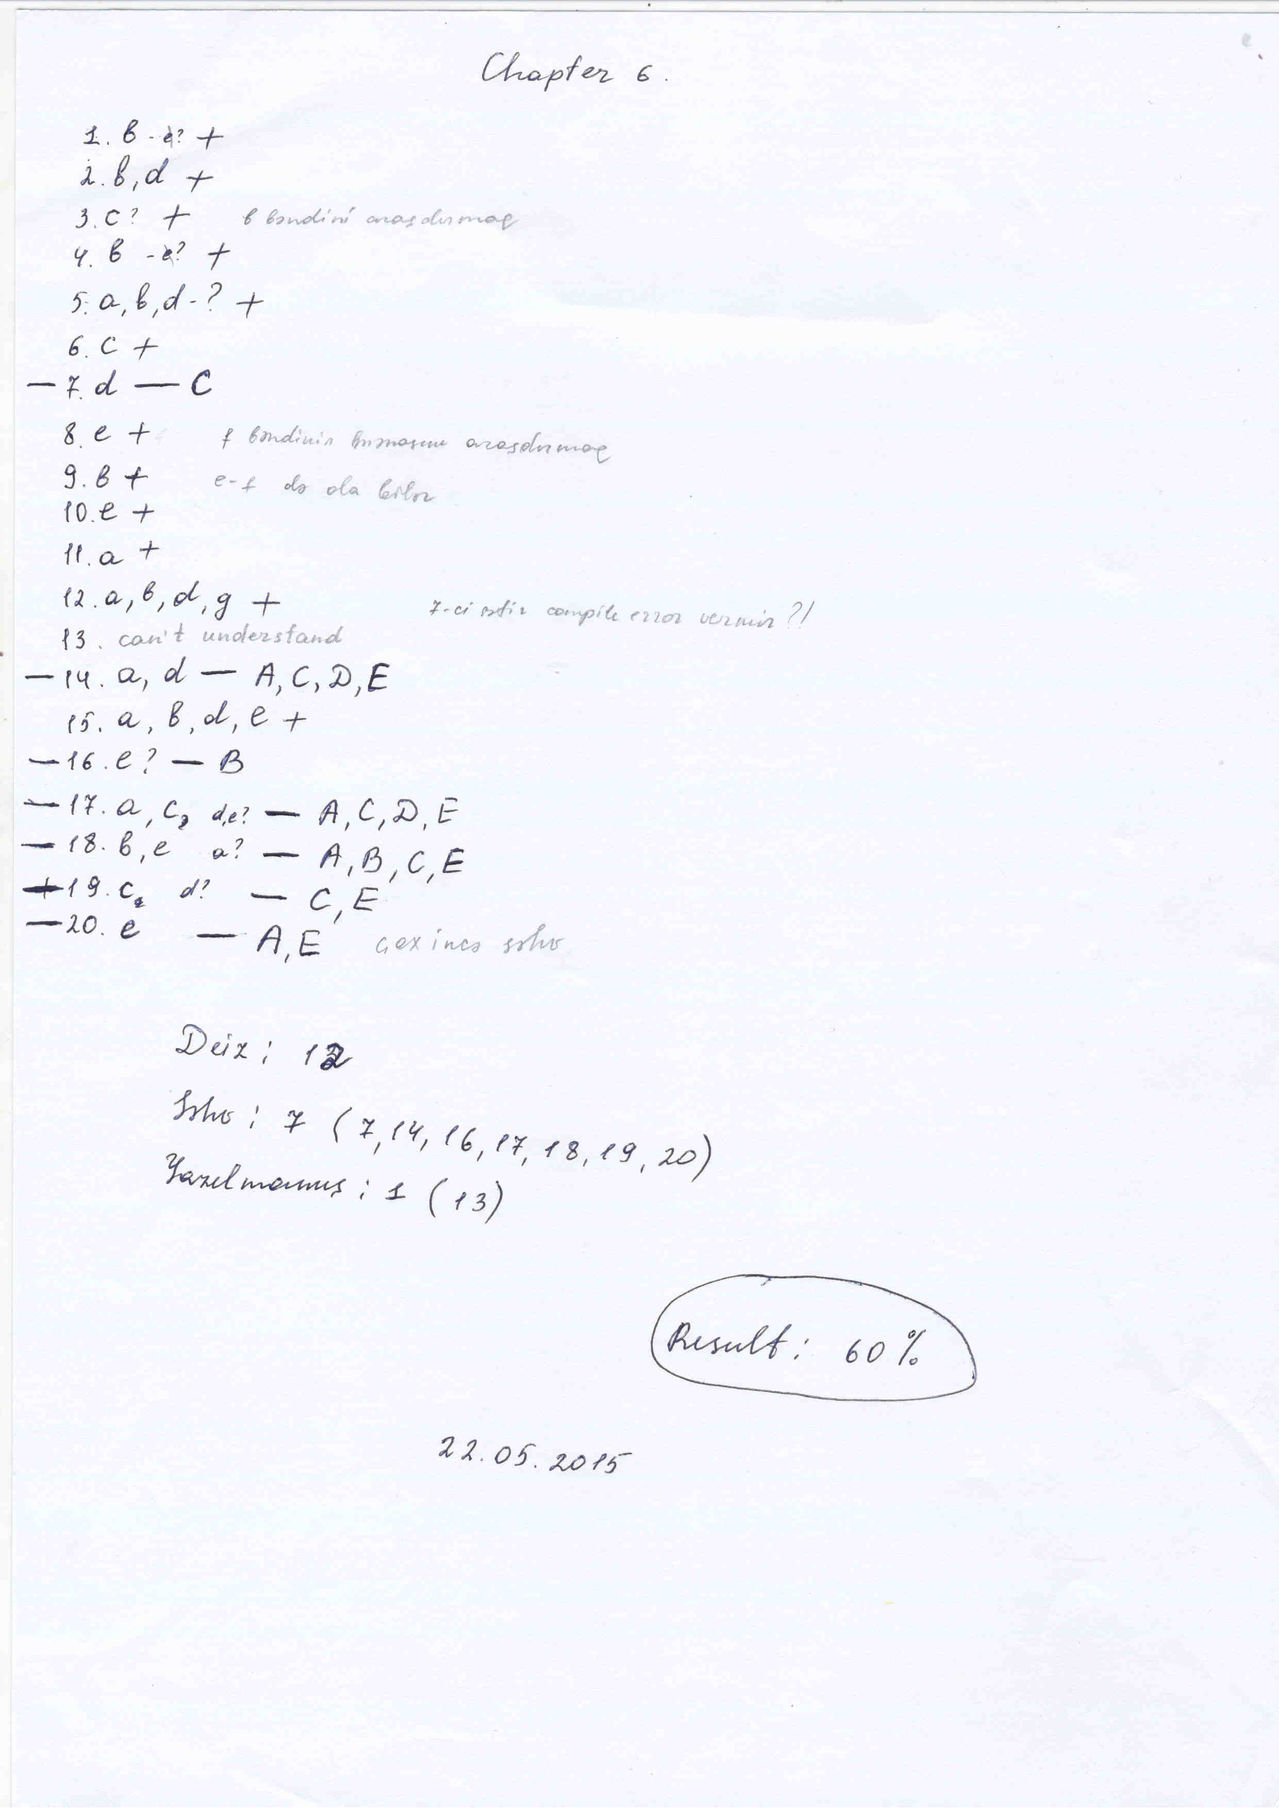 Chapter 6.
1. b - e? +
2. b, d +
3. c? + b bəndini araşdırmaq
4. b - e? +
5. a, b, d - ? +
6. c +
— 7. d — C
8. e + f bəndinin araşdırmaq
9. b + e-f də ola bilər
10. e +
11. a +
12. a, b, d, g + 7-ci sətir compile error vermir ?!
13. can't understand
— 14. a, d — A, C, D, E
15. a, b, d, e +
— 16. e? — B
— 17. a, c, d,e? — A, C, D, E
— 18. b, e a? — A, B, C, E
19. c, d? — C, E
— 20. e — A, E səhv
Düz : 12
Səhv : 7 (7, 14, 16, 17, 18, 19, 20)
Yazılmamış : 1 (13)
Result : 60 %
22.05.2015